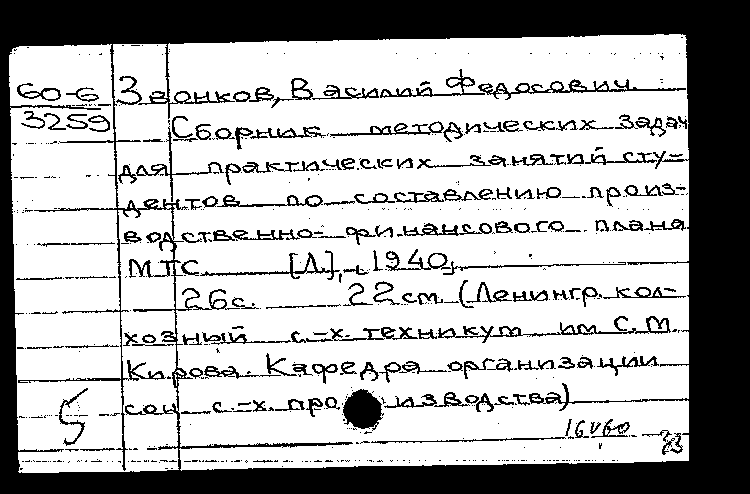 60-6 Звонков, Василий Федосович.
3259 Сборник методических задач
для практических занятий сту-
дентов по составлению произ-
водственно-финансового плана
МТС [Л.], 1940.
26с. 22 cm. (Ленингр. кол-
хозный с.-х. техникум им С.М.
Кирова. Кафедра организации
соц с.-х. производства)
16 V 60